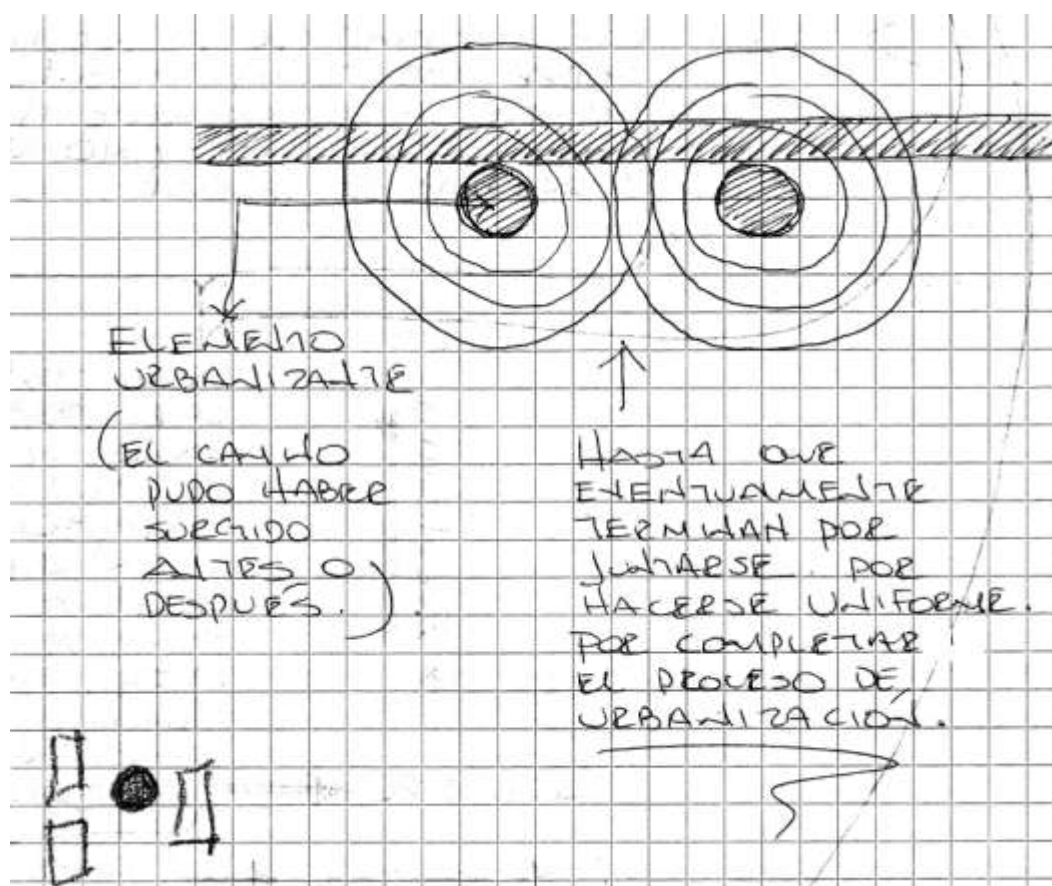 ELEMENTO
URBANIZANTE
(EL CAMINO
PUDO HABER
SURGIDO
ANTES O
DESPUÉS.).
HASTA QUE
EVENTUAMENTE
TERMINAN POR
JUNTARSE. POR
HACERSE UNIFORME.
POR COMPLETAR
EL PROCESO DE
URBANIZACIÓN.